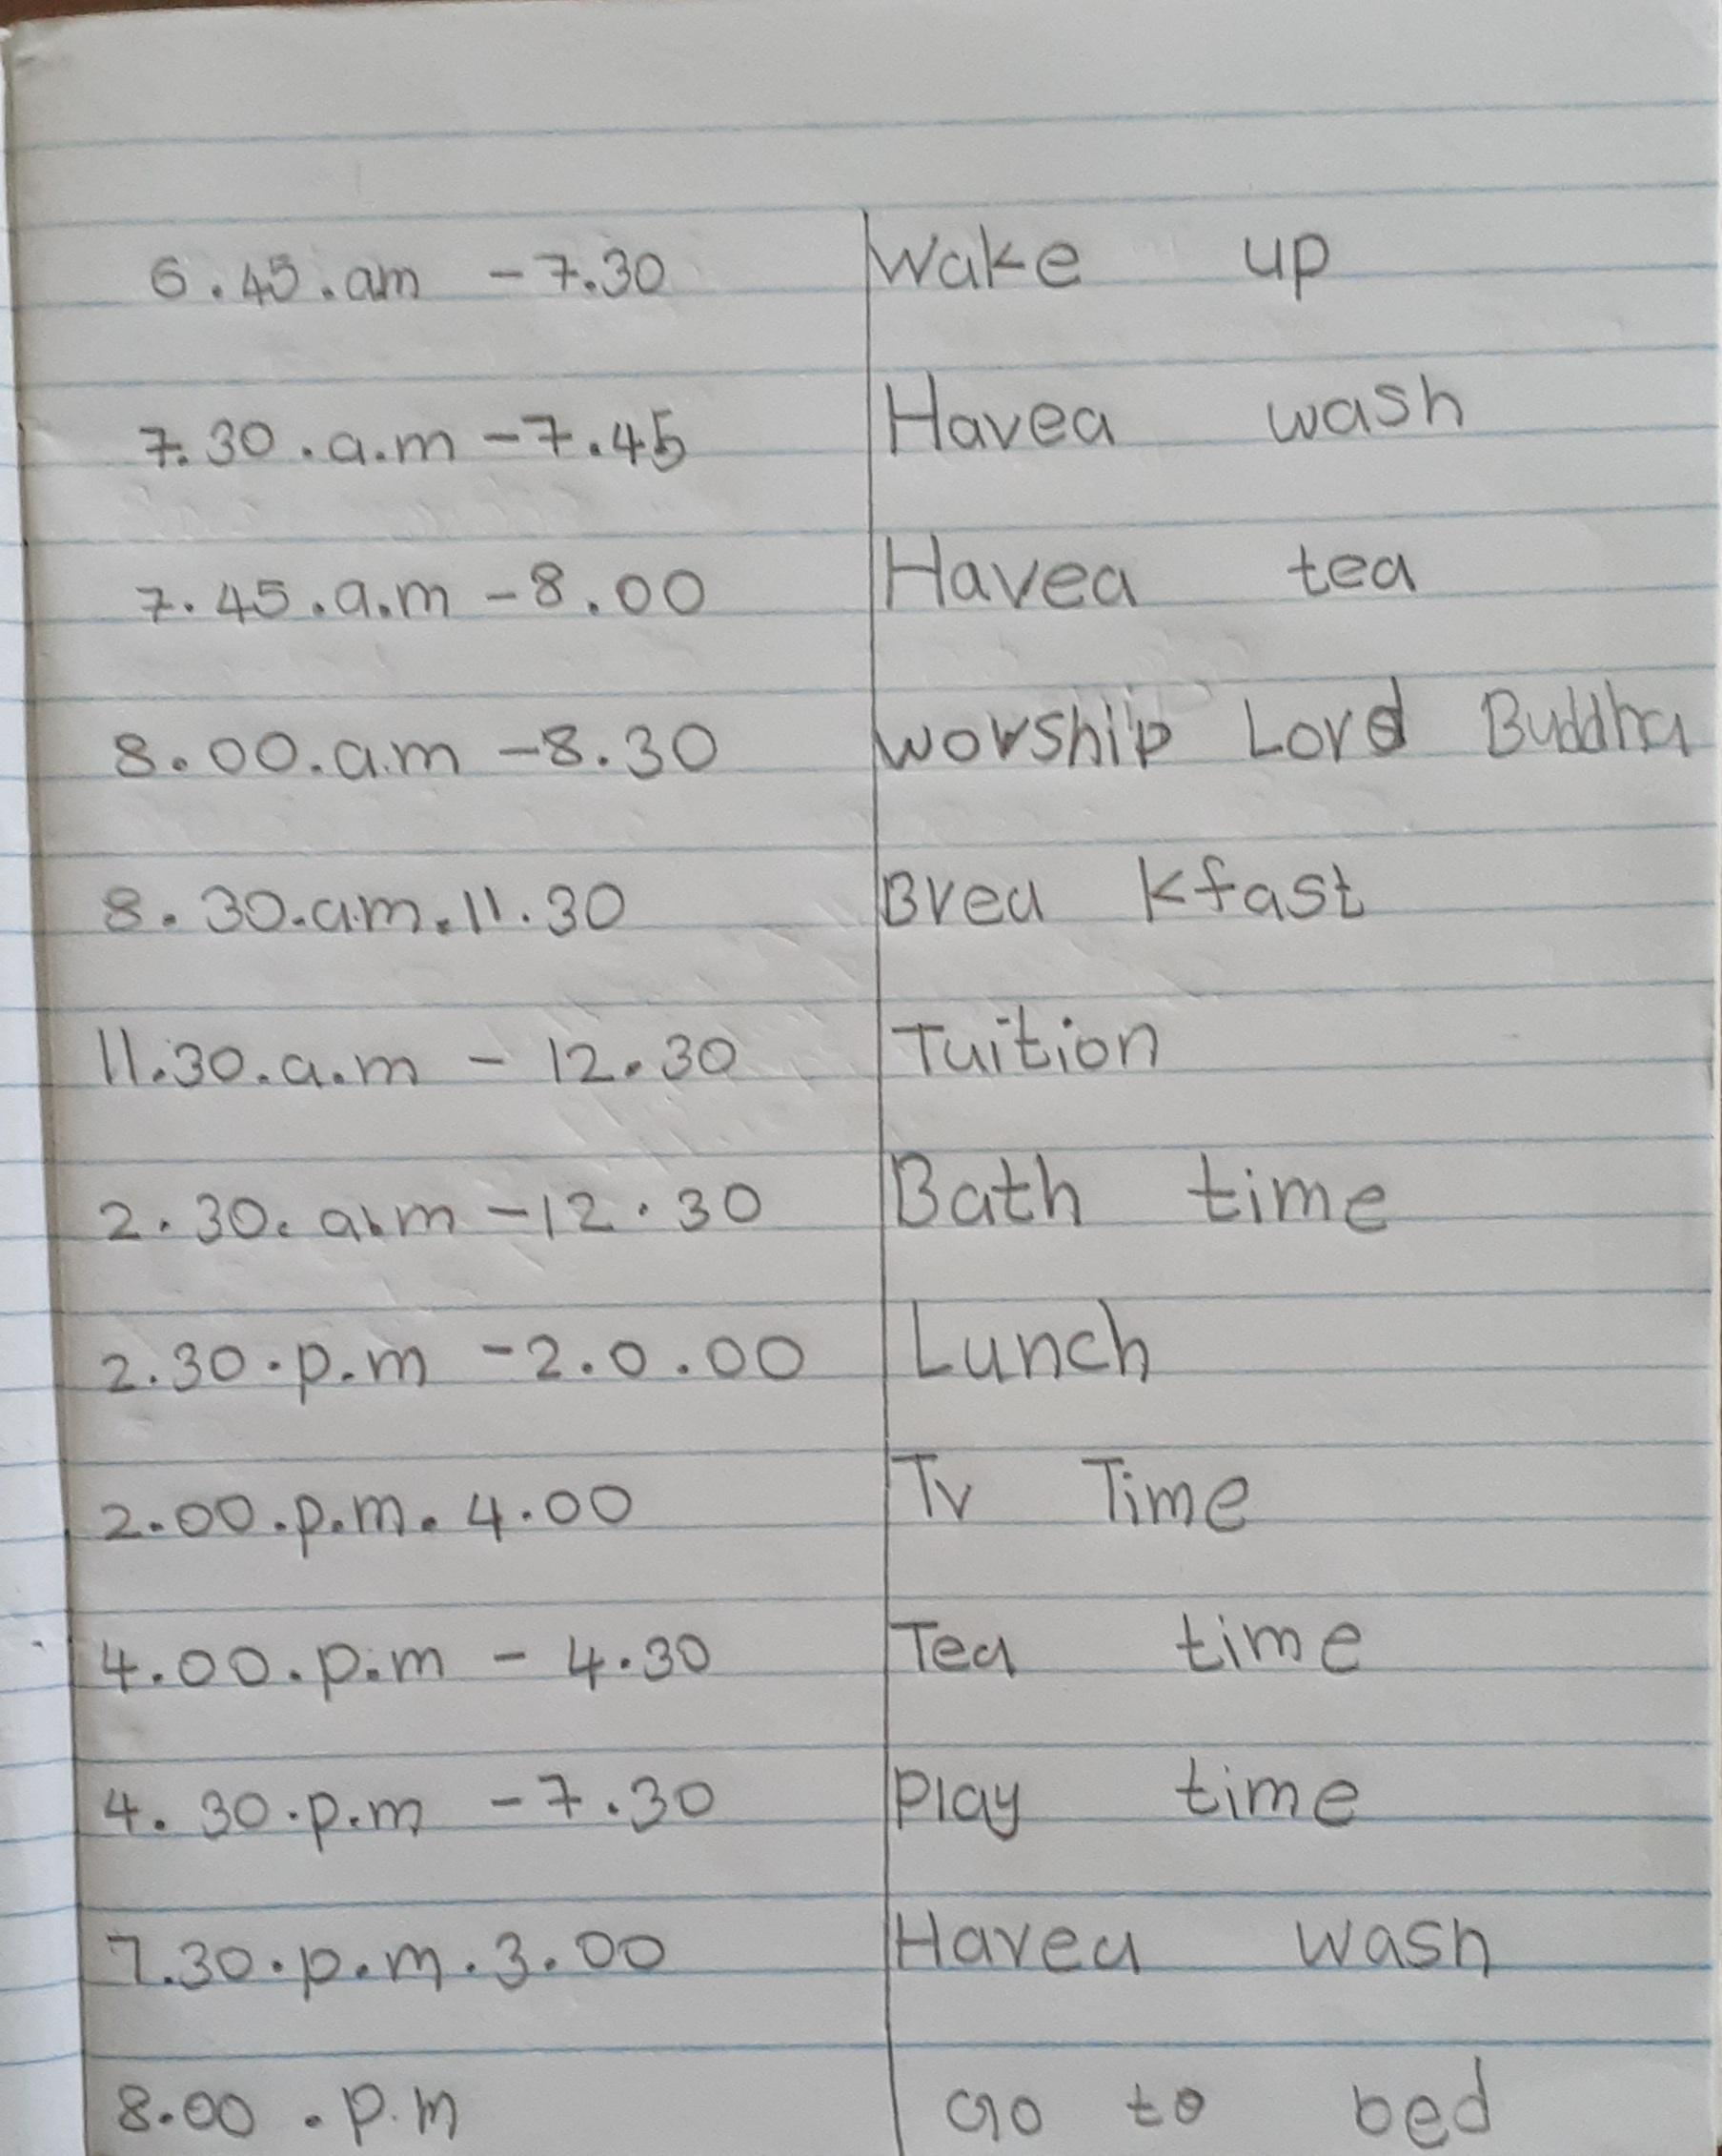 6.45.am - 7.30 Wake up
7.30.a.m - 7.45 Havea wash
7.45.a.m - 8.00 Havea tea
8.00.a.m - 8.30 worship Lord Buddha
8.30.a.m.11.30 Brea kfast
11.30.a.m - 12.30 Tuition
2.30.a.m - 12.30 Bath time
2.30.p.m - 2.0.00 Lunch
2.00.p.m. 4.00 Tv Time
4.00.p.m - 4.30 Tea time
4.30.p.m - 7.30 Play time
7.30.p.m.3.00 Havea wash
8.00.p.m Go to bed